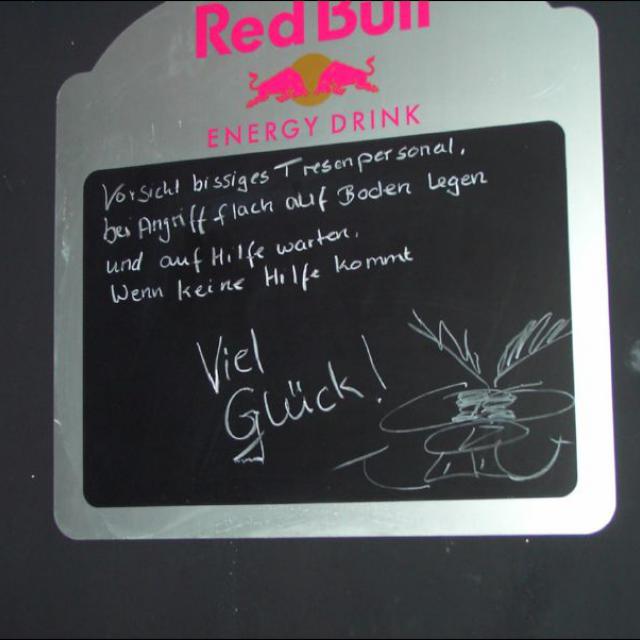 Red Bull
ENERGY DRINK
Vorsicht bissiges Tresenpersonal,
bei Angriff flach auf Boden legen
und auf Hilfe warten.
Wenn keine Hilfe kommt
Viel
Glück!